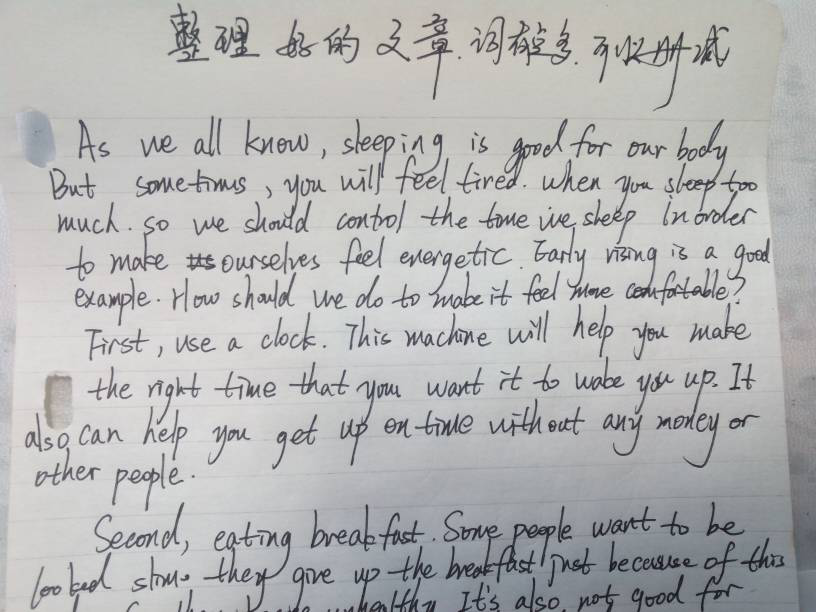 整理好的文章.词有点多.可以删减
As we all know, sleeping is good for our body
But sometimes, you will feel tired. When you sleep too
much. so we should control the time we sleep in order
to make us ourselves feel energetic. Early rising is a good
example. How should we do to make it feel more comfortable?
First, use a clock. This machine will help you make
the right time that you want it to wake you up. It
also can help you get up on time without any money or
other people.
Second, eating breakfast. Some people want to be
looked slim. they give up the breakfast just because of this
unhealthy It's also not good for